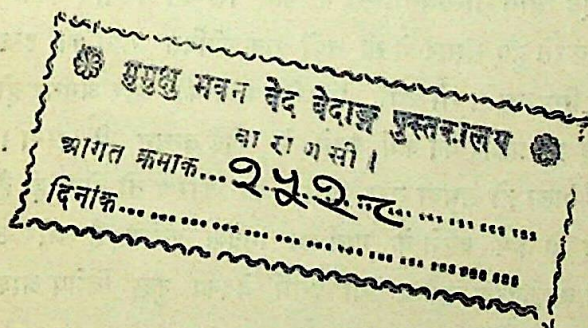 ❀ मुमुक्षु भवन वेद वेदाङ्ग पुस्तकालय ❀
वाराणसी।
आगत क्रमाक...२५२८...
दिनांक...